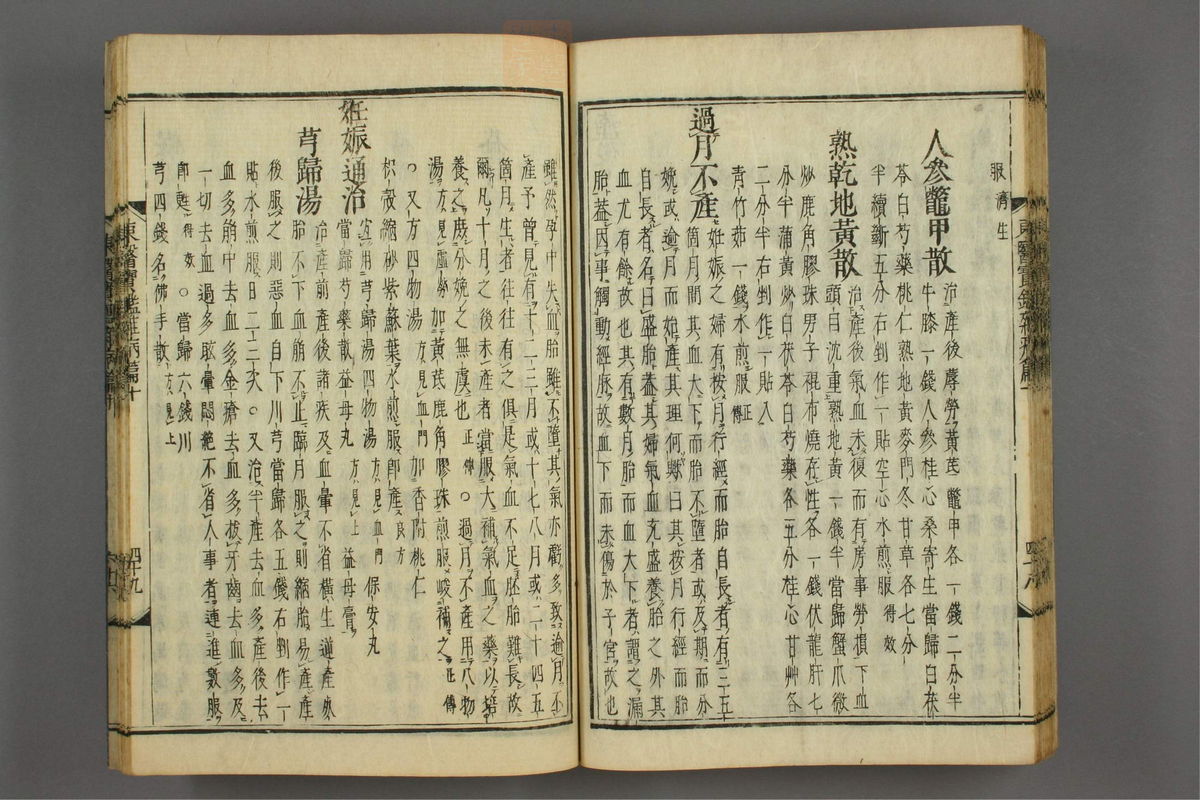 服 濟生
人參鼈甲散 治產後蓐勞黃芪鼈甲各一錢二分半
牛膝一錢人參桂心桑寄生當歸白茯
苓白芍藥桃仁熟地黃麥門冬甘草各七分
半續斷五分右剉作一貼空心水煎服 得效
熟乾地黃散 治產後氣血未復而有房事勞損下血
頭目沉重熟地黃一錢半當歸蟹爪微
炒鹿角膠珠男子裩布燒存性各一錢伏龍肝七
分半蒲黃炒白茯苓白芍藥各五分桂心甘艸各
二分半右剉作一貼入
靑竹茹一錢水煎服 正傳
過月不產 妊娠之婦有按月行經而胎自長者有三五
箇月間其血大下而胎不墮者或及期而分
娩或逾月而始產其理何歟曰其按月行經而胎
自長者名曰盛胎蓋其婦氣血充盛養胎之外其
血尤有餘故也其有數月胎而血大下者謂之漏
胎蓋因事觸動經脈故血下而未傷於子宮故也
雖然孕中失血胎雖不墮其氣亦虧多致逾月不
產予曾見有十二三月或十七八月或二十四五
箇月生者往往有之俱是氣血不足胚胎難長故
爾凡十月之後未產者當服大補氣血之藥以培
養之庶分娩之無虞也 正傳 ○過月不產用八物
湯 方見虛勞 加黃芪鹿角膠珠煎服峻補之 正傳
○又方四物湯 方見血門 加香附桃仁
枳殼縮砂紫蘇葉水煎服卽產 良方
妊娠通治 宜用芎歸湯四物湯 方見血門 保安丸
當歸芍藥散益母丸 方見上 益母膏
芎歸湯 治產前產後諸疾及血暈不省橫生逆產死
胎不下血崩不止臨月服之則縮胎易產產
後服之則惡血自下川芎當歸各五錢右剉作一
貼水煎服日二三次○又治半產去血多產後去
血多崩中去血多金瘡去血多拔牙齒去血多及
一切去血過多眩暈悶絶不省人事者連進數服
卽甦 得效 ○當歸六錢川
芎四錢名佛手散 方見上
東醫寶鑑雜病篇十
四十九